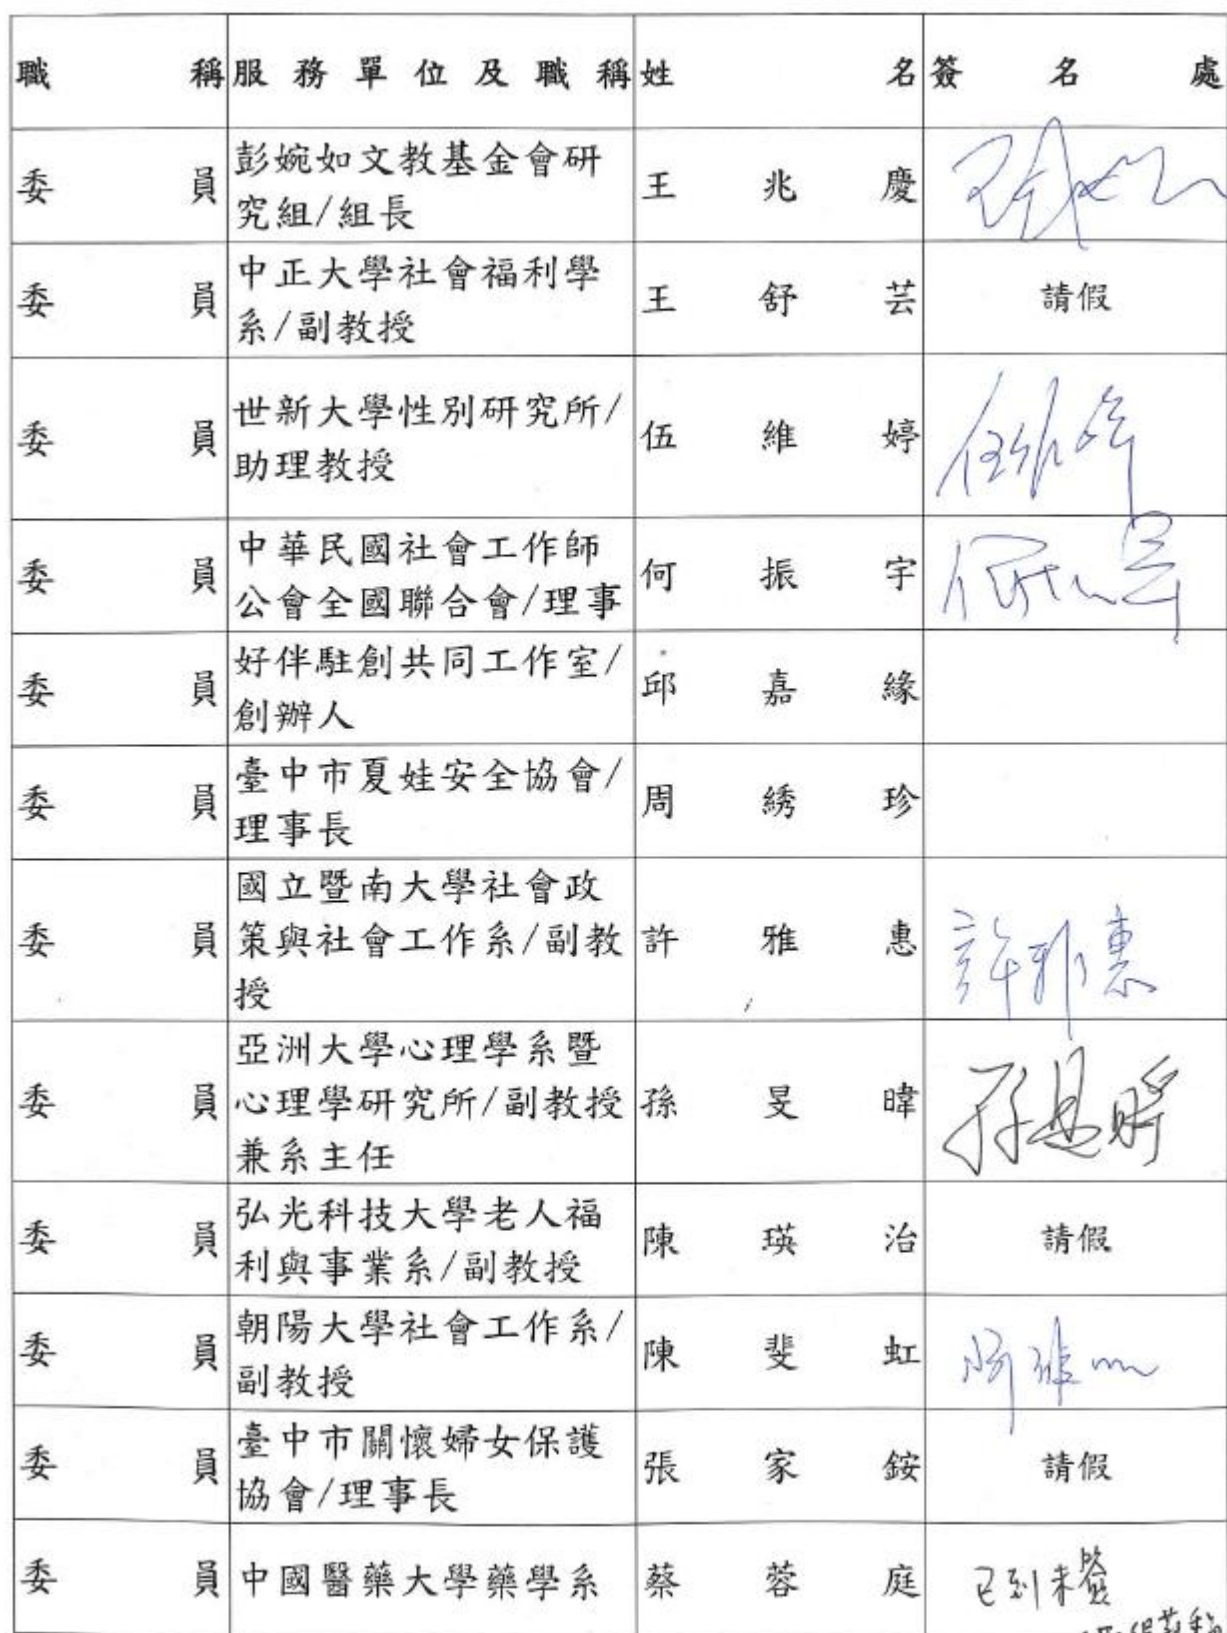 職稱 服務單位及職稱 姓名 簽名處
委員 彭婉如文教基金會研
究組/組長 王兆慶
委員 中正大學社會福利學
系/副教授 王舒芸 請假
委員 世新大學性別研究所/
助理教授 伍維婷 伍維婷
委員 中華民國社會工作師
公會全國聯合會/理事 何振宇
委員 好伴駐創共同工作室/
創辦人 邱嘉緣
委員 臺中市夏娃安全協會/
理事長 周綉珍
委員 國立暨南大學社會政
策與社會工作系/副教
授 許雅惠 許雅惠
委員 亞洲大學心理學系暨
心理學研究所/副教授
兼系主任 孫旻暐 孫旻暐
委員 弘光科技大學老人福
利與事業系/副教授 陳瑛治 請假
委員 朝陽大學社會工作系/
副教授 陳斐虹
委員 臺中市關懷婦女保護
協會/理事長 張家銨 請假
委員 中國醫藥大學藥學系 蔡蓉庭 已到未簽